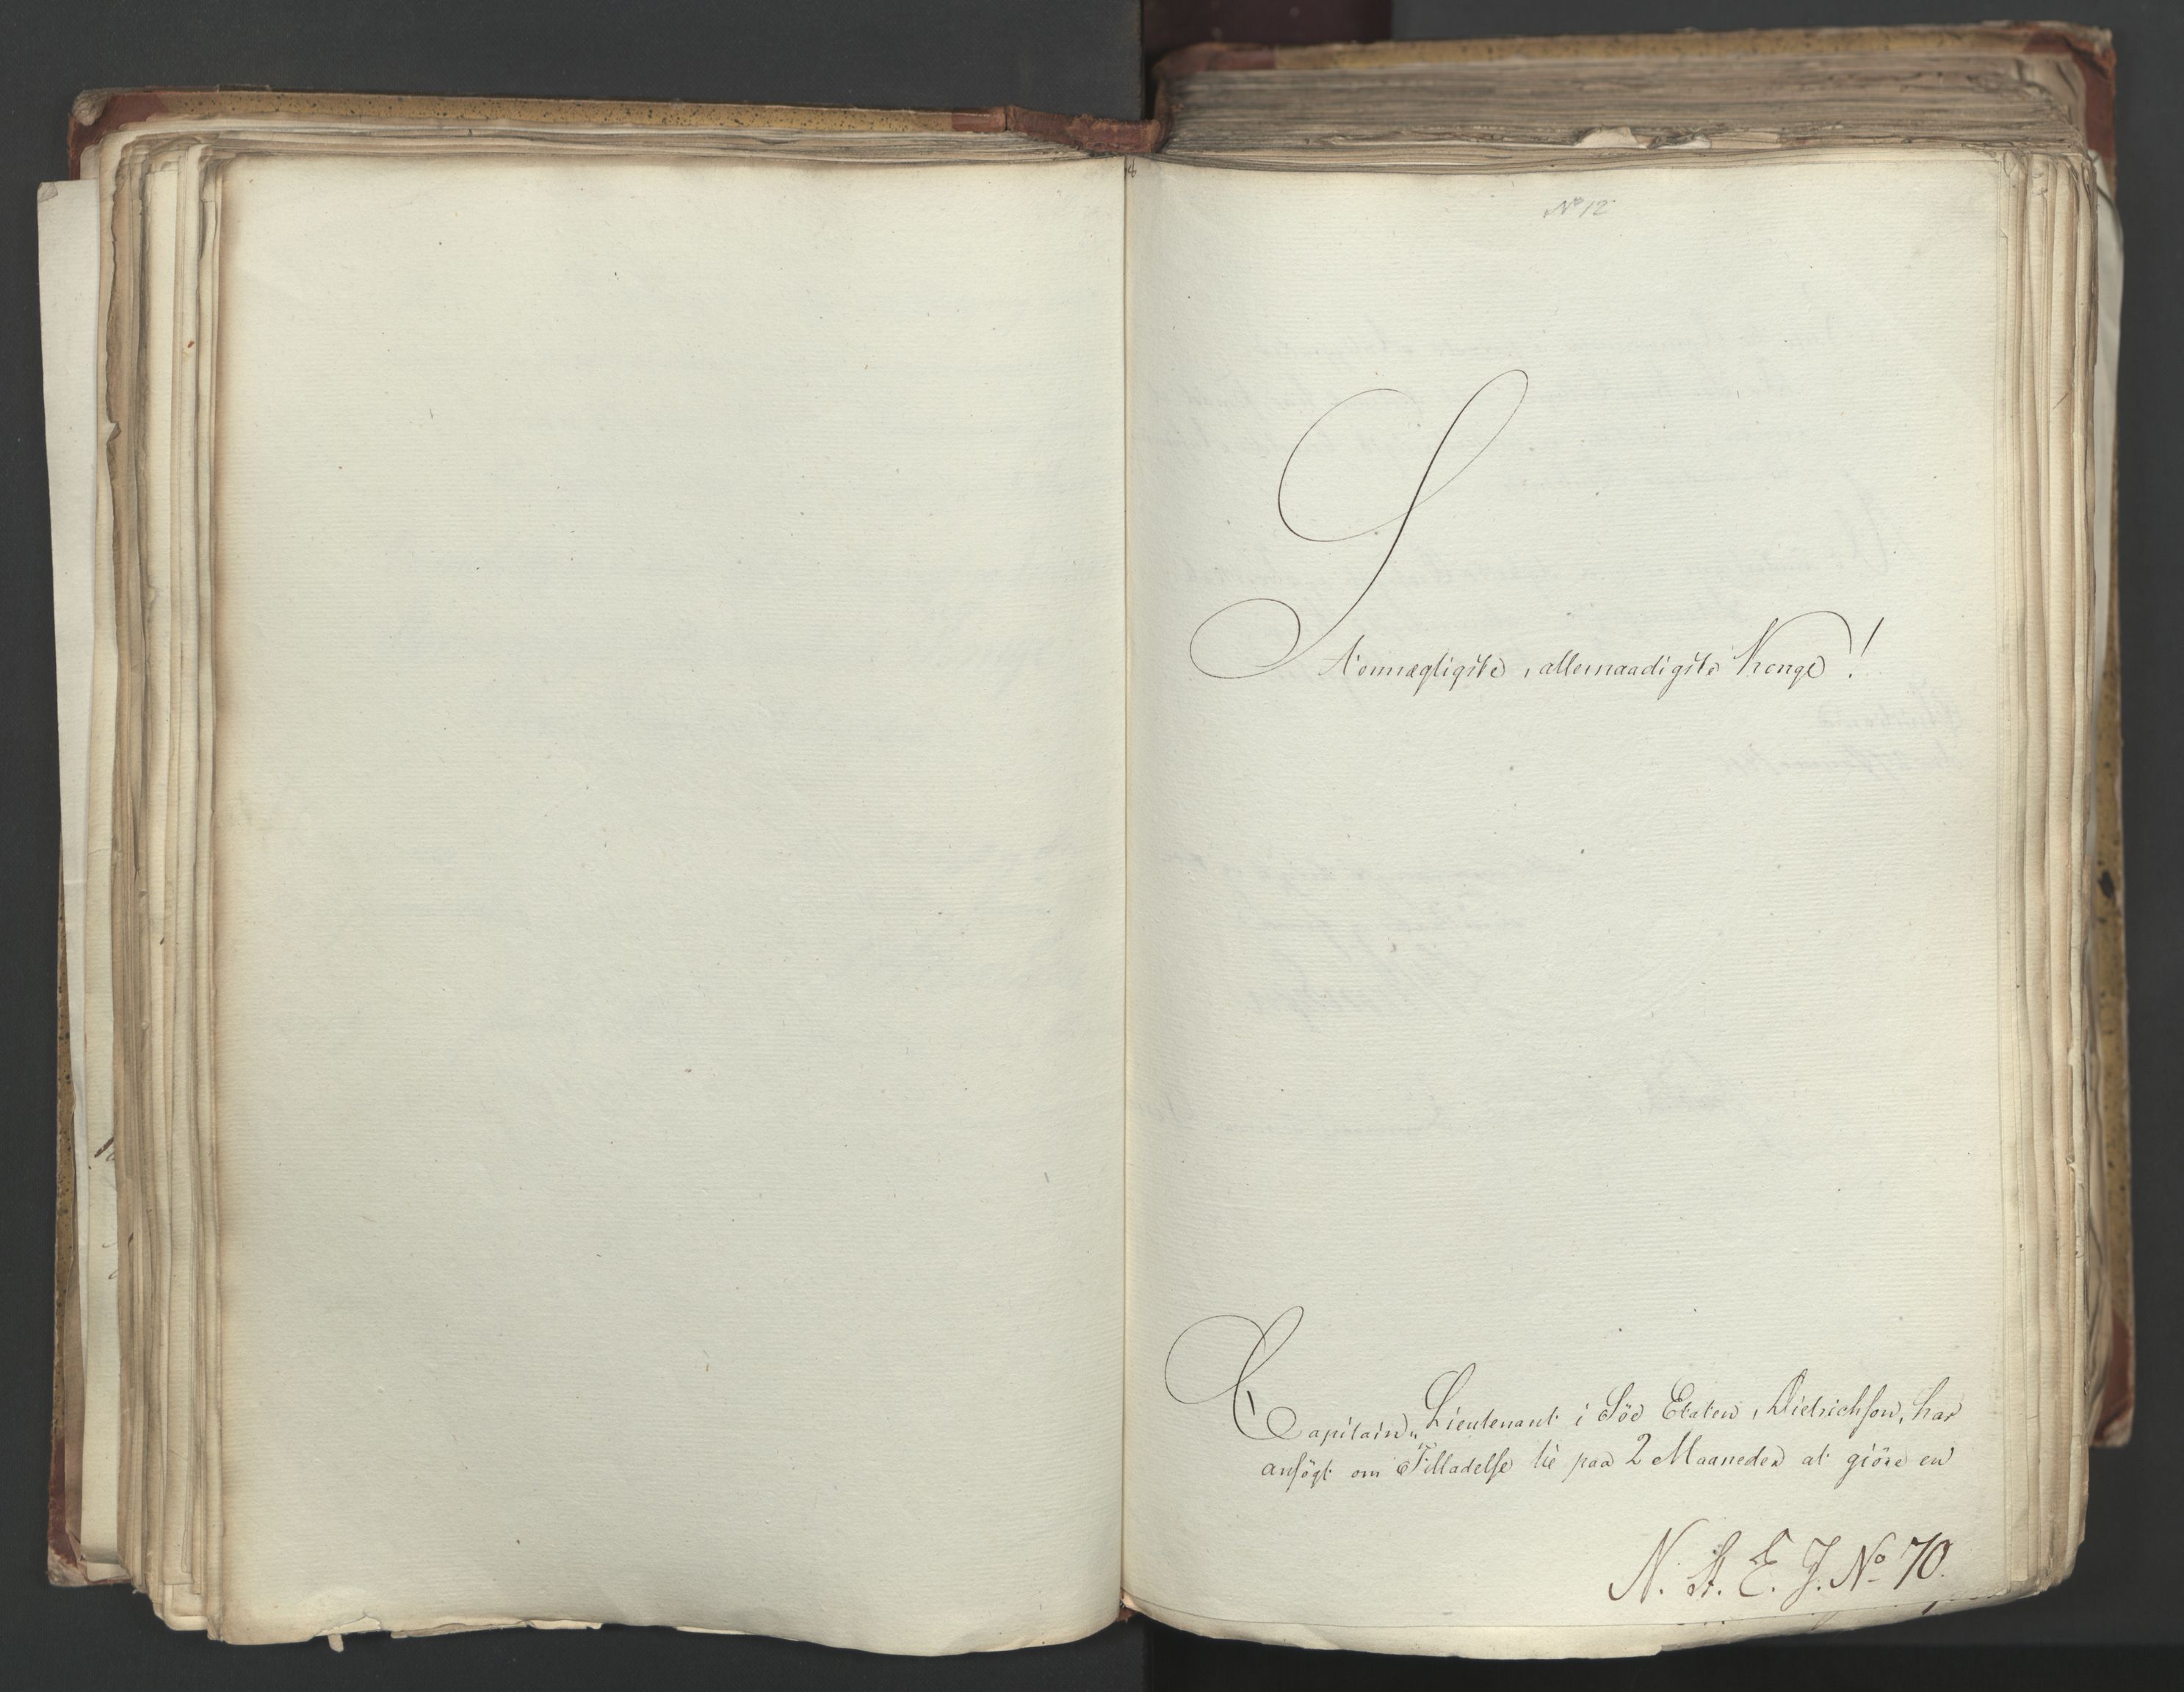 No 12
Stormægtigste, allernaadigste Konge!
Capitain-Lieutenant i Söe Etaten, Dietrichson, har
ansögt om Tilladelse til paa 2 Maaneder at giöre en
N. S. E. J. No 70.